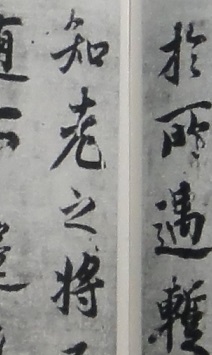 於所遇暫
知老之將